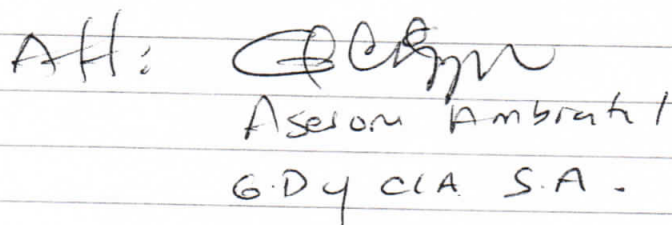 Att:
Asesora Ambiental
G.D y CIA S.A.